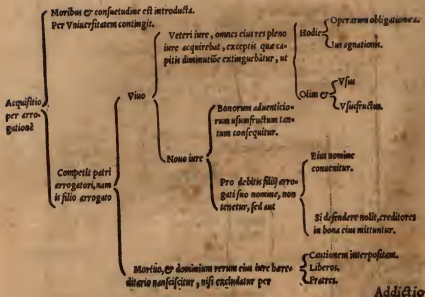 Moribus & consuetudine est introducta.
Per Vniuersitatem contingit.
Acquisitio
per arro-
gationē
Competit patri
arrogatori, nam
is filio arrogato
Viuo
Veteri iure, omnes eius res pleno
iure acquirebat, exceptis quæ ca-
pitis diminutiōe extinguebātur, ut
Hodie
Operarum obligationes.
Ius agnationis.
Olim &
Vsus
Vsufructus.
Nouo iure
Bonorum aduenticio-
rum usumfructum tan-
tum consequitur.
Pro debitis filij arro-
gati suo nomine, non
tenetur, sed aut
Eius nomine
conuenitur.
Si defendere nolit, creditores
in bona eius mittuntur.
Mortuo, & dominium rerum eius iure hære-
ditario nanciscitur, nisi excludatur per
Cautionem interpositam.
Liberos.
Fratres.
Addictio